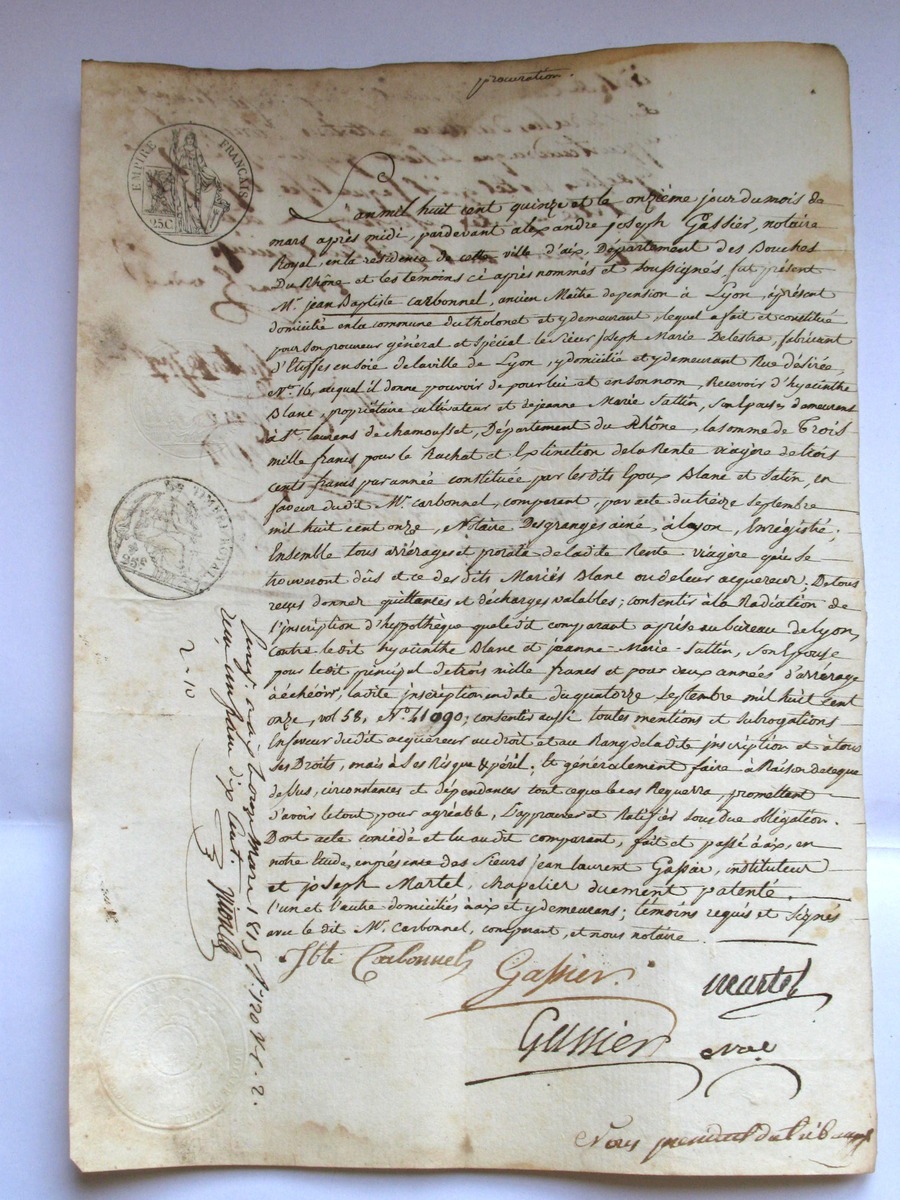 procuration.
EMPIRE FRANÇAIS
25C
TIMBRE ROYAL
25c
L'an mil huit cent quinze et le onzième jour du mois de
mars après midi, pardevant alexandre joseph Gassier, notaire
Royal, en la résidence de cette ville d'aix, Département des Bouches
du Rhône et les temoins ci après nommés et soussignés, fut présent
Mr. jean Baptiste Carbonnel, ancien Maitre de pension à Lyon, àprésent
domicilié en la commune du tholonet et y demeurant, lequel a fait et constitué
pour son procureur général et spécial le sieur joseph Marie Delestra, fabricant
d'Etoffes en soie de la ville de Lyon, y domicilié et y demeurant Rue désirée,
No. 16, auquel il donne pouvoir de pour lui et en son nom, Recevoir d'hyacinthe
Blanc, propriétaire cultivateur et de jeanne Marie Sattin, son Epouse demeurans
à St. laurens de chamousset, Département du Rhône, la somme de Trois
mille francs pour le Rachat et Extinction de la Rente viagère de trois
cents francs par année constituée par les dits Epoux Blanc et Satin, en
faveur du dit Mr. Carbonnel, comparant, par acte du treize septembre
mil huit cent onze, Notaire Desgranges ainé, à Lyon, Enregistré,
Ensemble tous arrérages et prorata de la dite Rente viagère qui se
trouveront dûs et ce des dits Mariés Blanc ou de leur acquereur; De tous
reçus donner quittances et décharges valables; consentir à la Radiation de
l'inscription d'hypothèque que le dit comparant a prise au bureau de Lyon,
contre le dit hyacinthe Blanc et jeanne-Marie-Sattin, son Epouse
pour le dit principal de trois mille francs et pour deux années d'arrérage
à échéoir, la dite inscription en date du quatorze septembre mil huit cent
onze, vol 58, No. 41090; consentir aussi toutes mentions et subrogations
En faveur du dit acquéreur au droit et au Rang de la dite inscription et à tous
ses Droits, mais à ses Risque & péril. Et généralement faire à Raison de ce que
dessus, circonstances et dépendances tout ce que le cas Requerra, promettant
d'avoir le tout pour agréable, L'approuver et Ratifier sous due obligation.
Dont acte concédé et lu au dit comparant, fait et passé à aix, en
notre Etude, en présence des sieurs jean laurent Gassier, instituteur
et joseph Martel, chapelier duement patenté
l'un et l'autre domiciliés à aix et y demeurans; témoins requis et signés
avec le dit Mr. Carbonnel, comparant, et nous notaire.
Jbte Carbonnel
Gassier
Martel
Gassier
à aix mars 1815
reçu un franc dix cent.
2-10